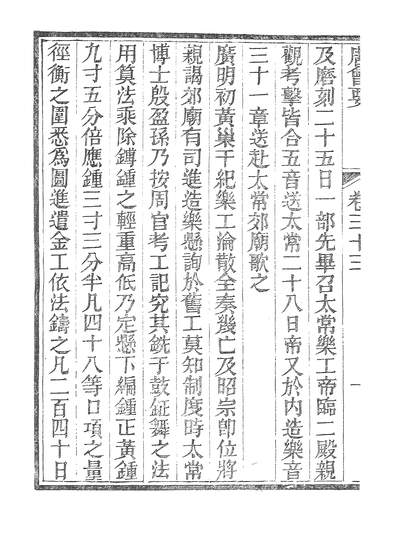 唐會要
卷三十三
一
及磨刻二十五日一部先畢召太常樂工帝臨二殿親
觀考擊皆合五音送太常二十八日帝又於内造樂音
三十一章送赴太常郊廟歌之
廣明初黃巢干紀樂工淪散全奏幾亡及昭宗卽位將
親謁郊廟有司進造樂懸詢於舊工莫知制度時太常
博士殷盈孫乃按周官考工記究其銑于鼓鉦舞之法
用算法乘除鎛鍾之輕重高低乃定懸下編鍾正黃鍾
九寸五分倍應鍾三寸三分半凡四十八等口項之量
徑衡之圍悉爲圖進遣金工依法鑄之凡二百四十日